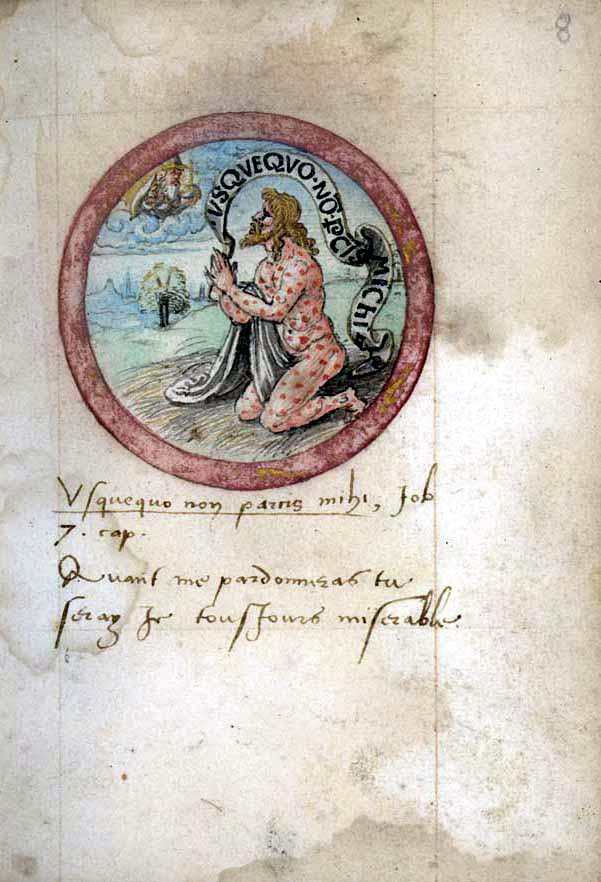 8
VSQVEQVO · NŌ · PCI · MICHI
Vsquequo non parcis mihi, Job
7. cap.
Quant me pardonneras tu
seray Je tousJours miserable.